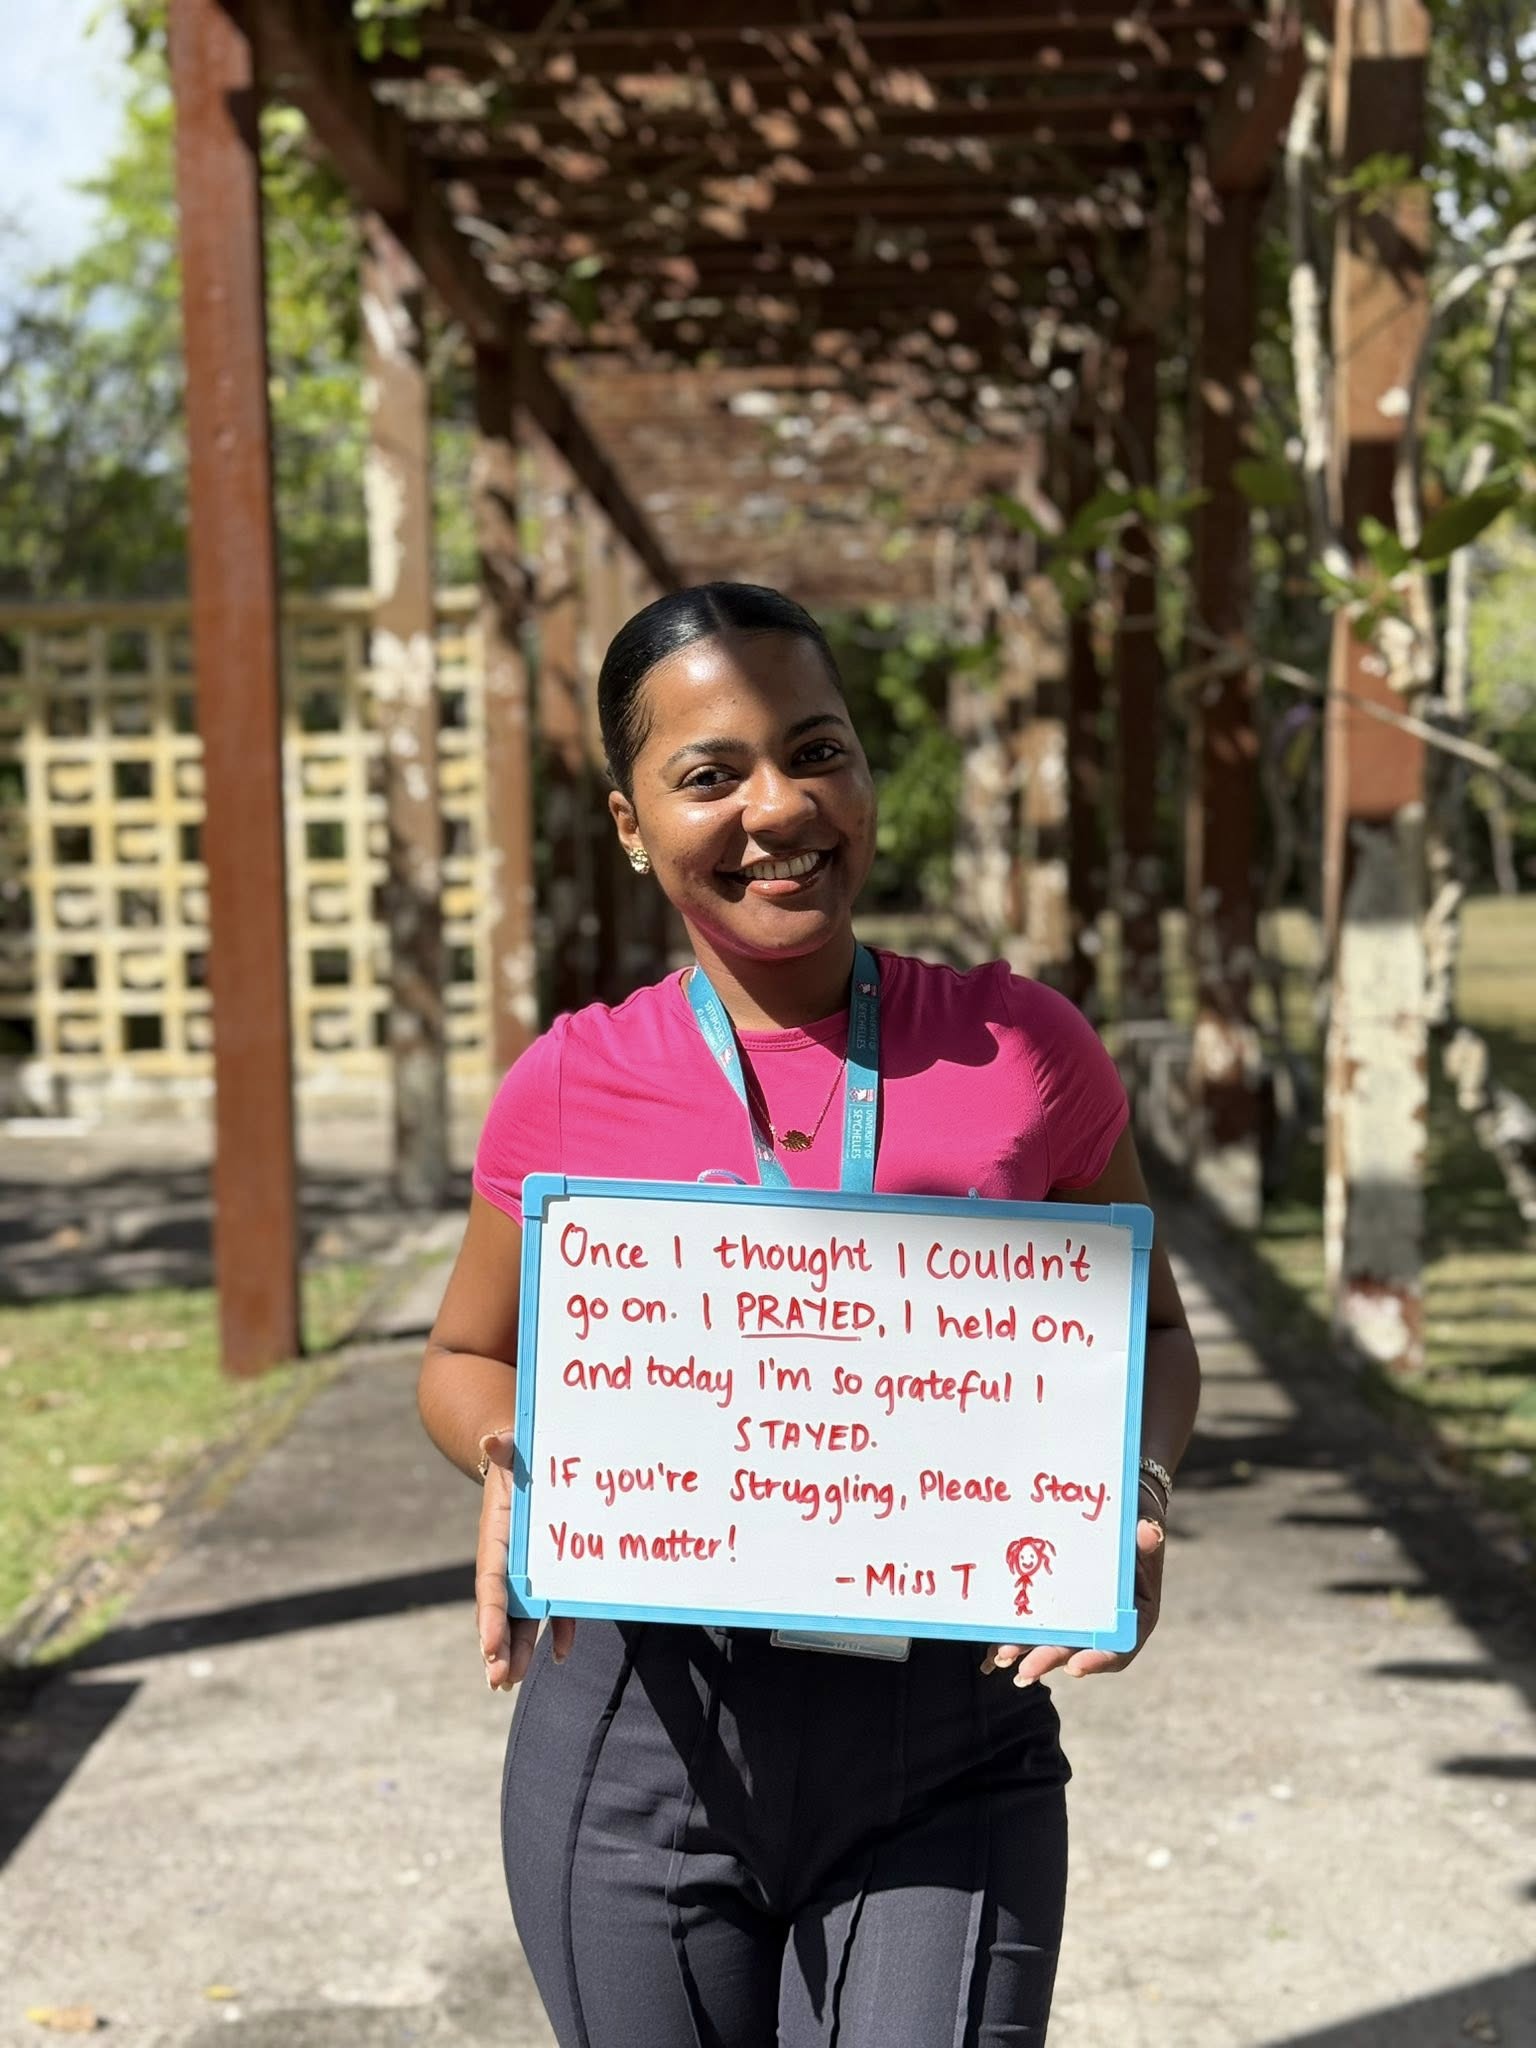 UNIVERSITY OF
SEYCHELLES
UNIVERSITY OF
SEYCHELLES
Once I thought I Couldn't
go on. I PRAYED, I held on,
and today I'm so grateful I
STAYED.
If you're Struggling, Please Stay.
You matter!
- Miss T
STAFF